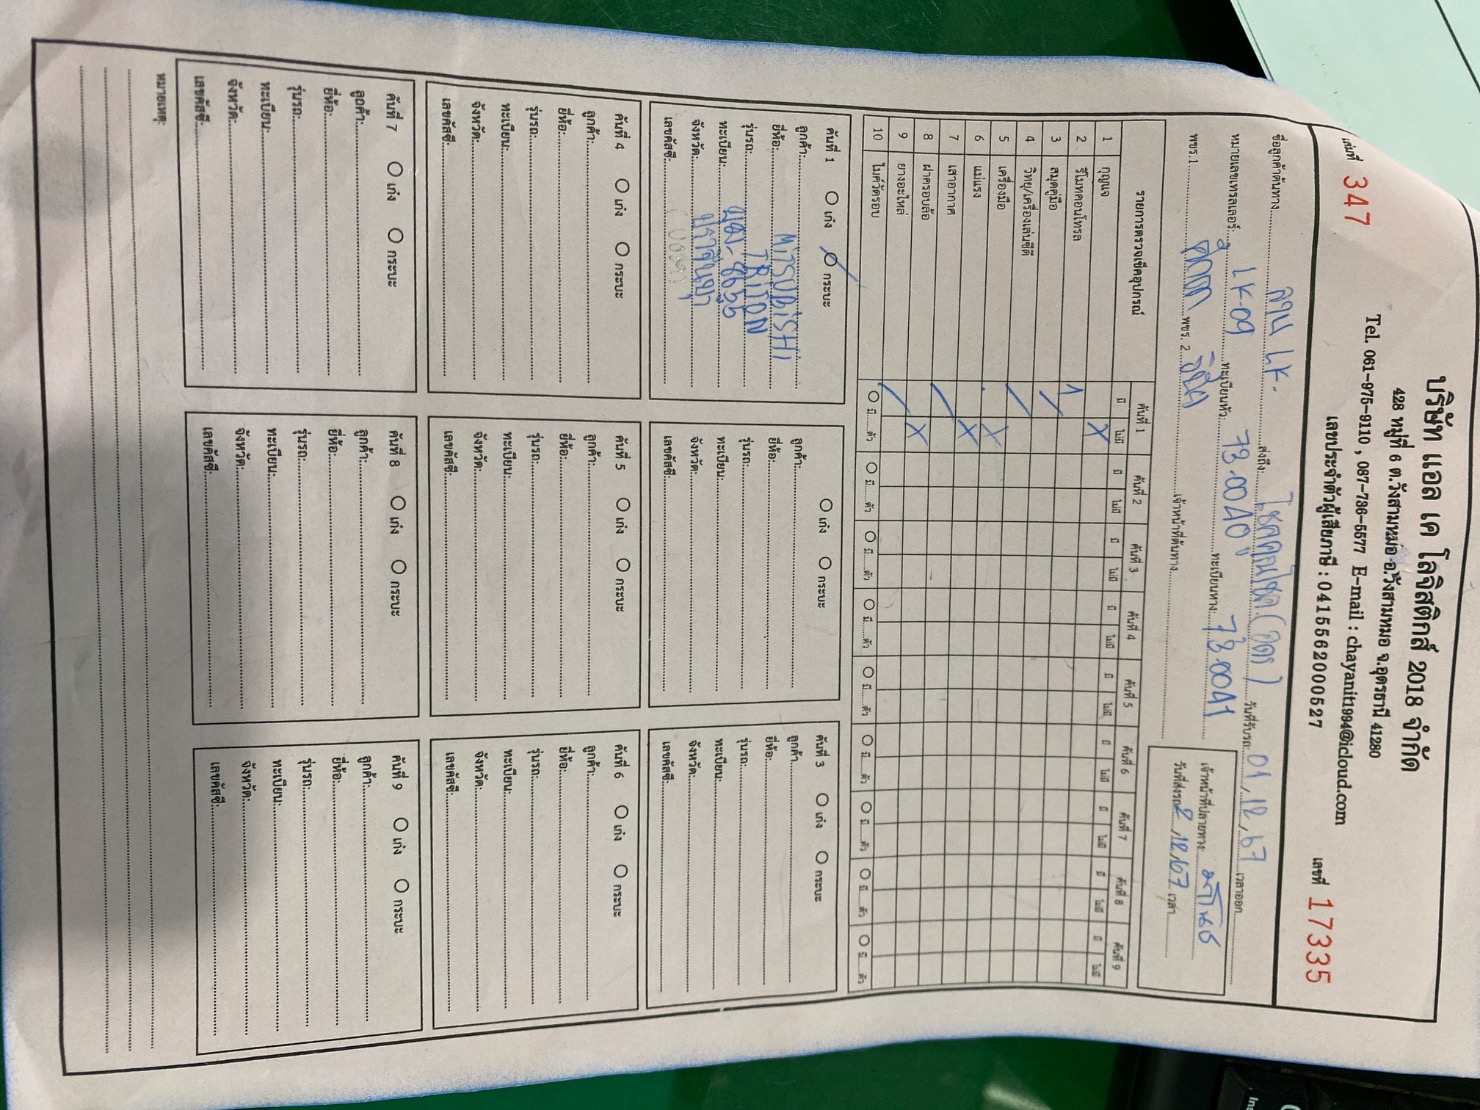 บริษัท แอล เค โลจิสติกส์ 2018 จำกัด
428 หมู่ที่ 6 ต.วังสามหมอ อ.วังสามหมอ จ.อุดรธานี 41280
Tel. 061-975-9110 , 087-736-5577 E-mail : chayanit1994@icloud.com
เลขประจำตัวผู้เสียภาษี : 0415562000527
เล่มที่ 347
เลขที่ 17335
ชื่อลูกค้าต้นทาง ลาน LK. ส่งถึง วันที่รับรถ 01,12,67 เวลาออก
หมายเลขเทรลเลอร์: LK-09 ทะเบียนหัว: 73.0040 ทะเบียนหาง: 73.0041
พขร.1 พขร. 2 เจ้าหน้าที่ต้นทาง
เจ้าหน้าที่ปลายทาง:
วันที่ส่งรถ 2,12,67 เวลา
รายการตรวจเช็คอุปกรณ์ คันที่ 1 คันที่ 2 คันที่ 3 คันที่ 4 คันที่ 5 คันที่ 6 คันที่ 7 คันที่ 8 คันที่ 9
มี ไม่มี มี ไม่มี มี ไม่มี มี ไม่มี มี ไม่มี มี ไม่มี มี ไม่มี มี ไม่มี มี ไม่มี
1 กุญแจ X
2 รีโมทคอนโทรล 1
3 สมุดคู่มือ /
4 วิทยุ/เครื่องเล่นซีดี /
5 เครื่องมือ X
6 แม่แรง X
7 เสาอากาศ /
8 ฝาครอบล้อ X
9 ยางอะไหล่ /
10 ไมค์วัดรอบ มี.....ตัว มี.....ตัว มี.....ตัว มี.....ตัว มี.....ตัว มี.....ตัว มี.....ตัว มี.....ตัว มี.....ตัว
คันที่ 1 เก๋ง กระบะ
ลูกค้า:
ยี่ห้อ: MITSUBISHI
รุ่นรถ: TRITON
ทะเบียน:
จังหวัด:
เลขตัวถัง:
เก๋ง กระบะ
ลูกค้า:
ยี่ห้อ:
รุ่นรถ:
ทะเบียน:
จังหวัด:
เลขคัสซี:
คันที่ 3 เก๋ง กระบะ
ลูกค้า:
ยี่ห้อ:
รุ่นรถ:
ทะเบียน:
จังหวัด:
เลขคัสซี:
คันที่ 4 เก๋ง กระบะ
ลูกค้า:
ยี่ห้อ:
รุ่นรถ:
ทะเบียน:
จังหวัด:
เลขคัสซี:
คันที่ 5 เก๋ง กระบะ
ลูกค้า:
ยี่ห้อ:
รุ่นรถ:
ทะเบียน:
จังหวัด:
เลขคัสซี:
คันที่ 6 เก๋ง กระบะ
ลูกค้า:
ยี่ห้อ:
รุ่นรถ:
ทะเบียน:
จังหวัด:
เลขคัสซี:
คันที่ 7 เก๋ง กระบะ
ลูกค้า:
ยี่ห้อ:
รุ่นรถ:
ทะเบียน:
จังหวัด:
เลขคัสซี:
คันที่ 8 เก๋ง กระบะ
ลูกค้า:
ยี่ห้อ:
รุ่นรถ:
ทะเบียน:
จังหวัด:
เลขคัสซี:
คันที่ 9 เก๋ง กระบะ
ลูกค้า:
ยี่ห้อ:
รุ่นรถ:
ทะเบียน:
จังหวัด:
เลขคัสซี:
หมายเหตุ: